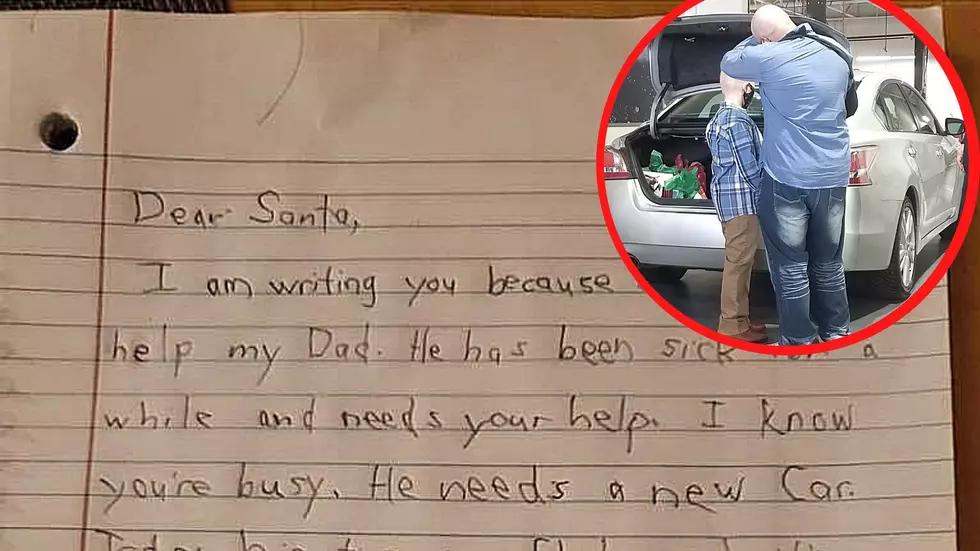 Dear Santa,
I am writing you because
help my Dad. He has been sick for a
while and needs your help. I know
you're busy. He needs a new Car.